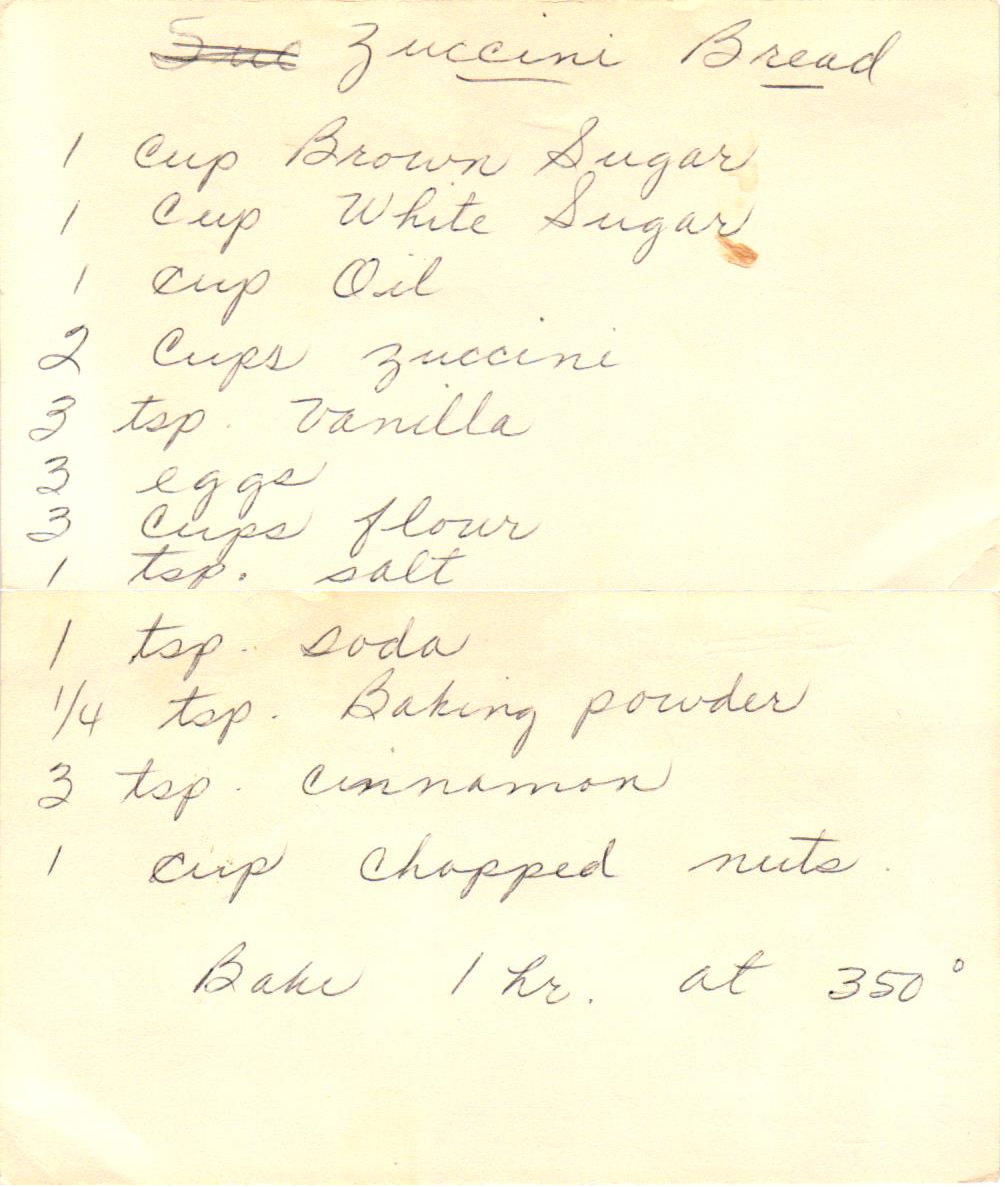 Zuccini Bread
1 cup Brown Sugar
1 Cup White Sugar
1 cup Oil
2 Cups zuccini
3 tsp. Vanilla
3 eggs
3 Cups flour
1 tsp. salt
1 tsp. soda
1/4 tsp. Baking powder
3 tsp. cinnamon
1 cup chopped nuts
Bake 1 hr. at 350°